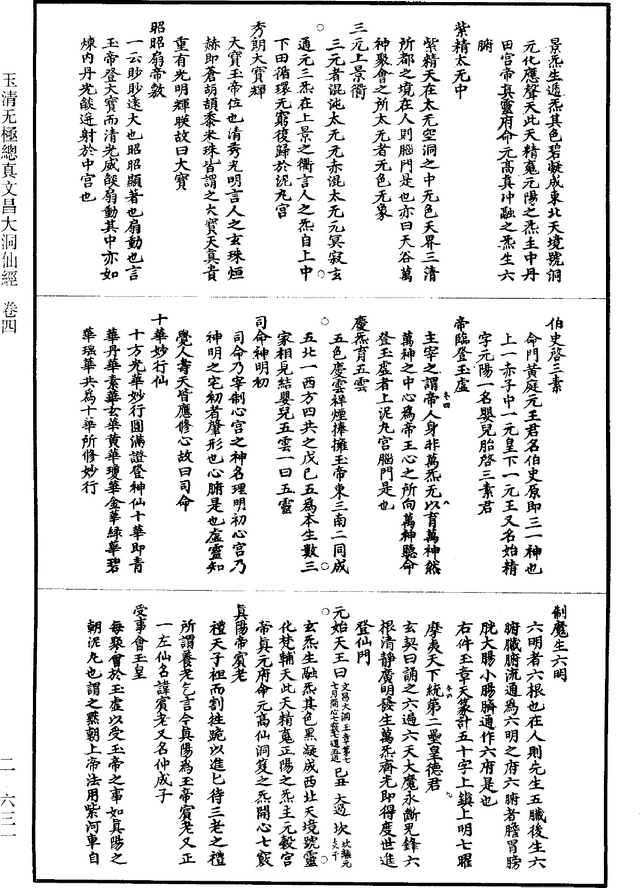 景炁生遁炁其色碧凝成東北天境號洞
元化應聲天此天精𩲃元陽之炁主中丹
田宮帝真靈府命元高真冲融之炁生六
腑
紫精太无中
紫精天在太无空洞之中无色天界三清
所都之境在人則腦門是也亦曰天谷萬
神聚會之所太无者无色无象
三元上景衢
三元者混沌太无元赤混太无元冥寂玄
通元三炁在上景之衢言人之炁自上中
下田循環无窮復歸於泥丸宮
秀朗大寶輝
大寶玉帝位也清秀光明言人之玄珠烜
赫即蒼胡頡黍米珠皆謂之大寶天真貴
重有光明輝映故曰大寶
昭昭扇帝敷
一云眇眇遠大也昭昭顯著也扇動也言
玉帝登大寶而清光威燄扇動其中亦如
煉內丹光燄迸射於中宮也
伯史啓三素
命門黃庭元王君名伯史原即三一神也
上一赤子中一元皇下一元王又名始精
字元陽一名嬰兒胎啓三素君
帝臨登玉虛
主宰之謂帝人身非萬炁无以育萬神然
萬神之中心為帝王心之所向萬神聽命
登玉虛者上泥丸宮腦門是也
慶炁育五雲
五色慶雲祥煙捧擁玉帝東三南二同成
五北一西方四共之戊己五為本生數三
家相見結嬰兒五雲一曰五靈
司命神明初
司命乃宰制心宮之神名理明初心宮乃
神明之宅初者肇形也心腑是也虛靈知
覺人壽夭皆應修心故曰司命
十華妙行仙
十方光華妙行圓滿證登神仙十華即青
華丹華素華玄華黃華瓊華金華綠華碧
華瑶華共為十華所修妙行
制魔生六明
六明者六根也在人則先生五臟後生六
腑臟腑流通為六明之府六腑者膽胃膀
胱大腸小腸臍通作六府是也
右件玉章天篆計五十字上鎮上明七曜
摩夷天下統第二壘皇德君
玄契曰誦之六遍六天大魔永斷鬼鋒六
根清靜廣明發生萬炁齋光即得度世進
登仙門
元始天王曰
玄炁生融炁其色黑凝成西北天境號靈
化梵輔天此天精𩲃正陽之炁主元縠宮
帝真元府命元高仙洞笈之炁開心七竅
真陽帝賓老
禮天子袒而割牲跪以進匕待三老之禮
所謂養老乞言今真陽為玉帝賓老又正
一左仙名諱賓老又名仲成子
受事會玉皇
每聚會於玉虛以受玉帝之事如真陽之
朝泥丸也謂之默朝上帝法用紫河車自
玉清无極總真文昌大洞仙經　卷四
二—六三一